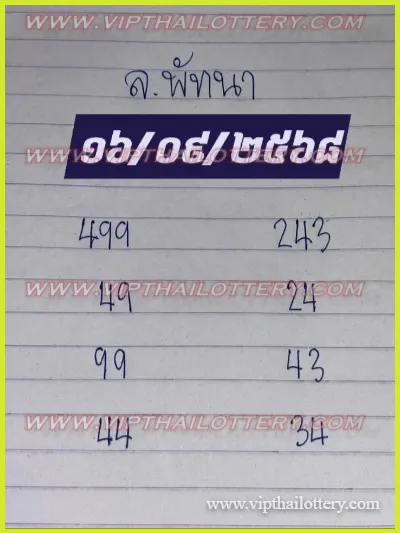 WWW.VIPTHAILOTTERY.COM
ล.พัทนา
๑๖/๐๙/๒๕๖๘
WWW.VIPTHAILOTTERY.COM
499 243
WWW.VIPTHAILOTTERY.COM
49 24
99 43
WWW.VIPTHAILOTTERY.COM
44 34
www.vipthailottery.com